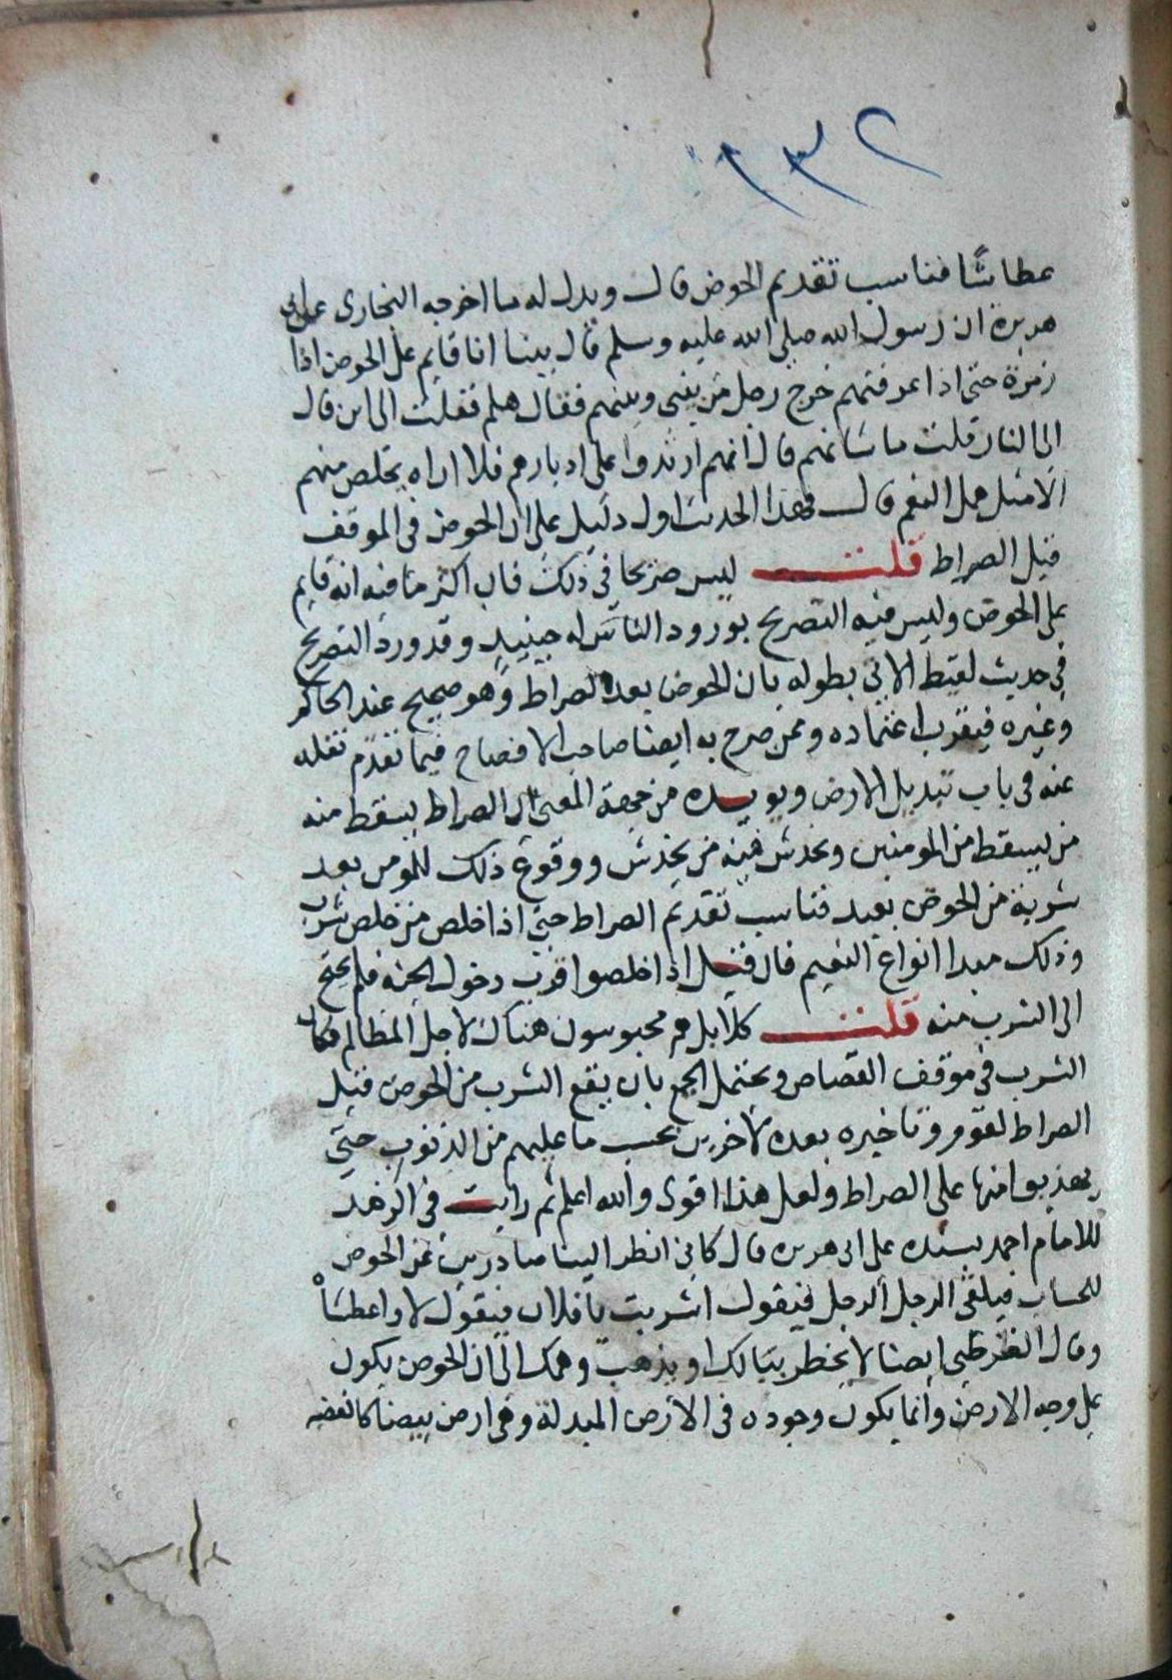 ١٣٢
عطاشا فناسب تقديم الحوض قال ويدل له ما اخرجه البخارى عن ابى
هريرة ان رسول الله صلى الله عليه وسلم قال بينا انا قايم على الحوض اذا
زمرة حتى اذا عرفتهم خرج رجل من بينى وبينهم فقال هلم فقلت الى اين قال
الى النار قلت ما شانهم قال انهم ارتدوا على ادبارهم فلا اراه يخلص منهم
الا مثل همل النعم قال فهذا الحديث اول دليل على ان الحوض فى الموقف
قبل الصراط قلت ليس صريحا فى ذلك فان اكثر ما فيه انه قايم
على الحوض وليس فيه التصريح بورود الناس له حينيذ وقد ورد التصريح
فى حديث لقيط الاتى بطوله بان الحوض بعد الصراط وهو صحيح عند الحاكم
وغيره فيقرب اعتماده وممن صرح به ايضا صاحب الافصاح فيما تقدم نقله
عنه فى باب تبديل الارض ويويده من جهة المعنى ان الصراط يسقط منه
من يسقط من المومنين ويخدش فيه من يخدش ووقوع ذلك للمومن بعد
شربة من الحوض بعيد فناسب تقديم الصراط حتى اذا خلص من خلص شرب
وذلك مبدا انواع النعيم فان قيل اذا خلصوا قرب دخول الجنة فلم يحتج
الى الشرب منه قلت كلا بل هم محبوسون هناك لاجل المظالم فكان
الشرب فى موقف القصاص ويحتمل الجمع بان يقع الشرب من الحوض قبل
الصراط لقوم وتاخيره بعده لاخرين بحسب ما عليهم من الذنوب حتى
يهذبوا منها على الصراط ولعل هذا اقوى والله اعلم ثم رايت فى الزهد
للامام احمد بسنده عن ابى هريره قال كانى انظر الينا صادرين عن الحوض
للحساب فيلقى الرجل الرجل فيقول اشربت يا فلان فيقول لا واعطشاْ
وقال القرطبى ايضا لا يخطر ببالك او يذهب وهمك الى ان الحوض يكون
على وجه الارض وانما يكون وجوده فى الارض المبدلة وهى ارض بيضا كالفضه